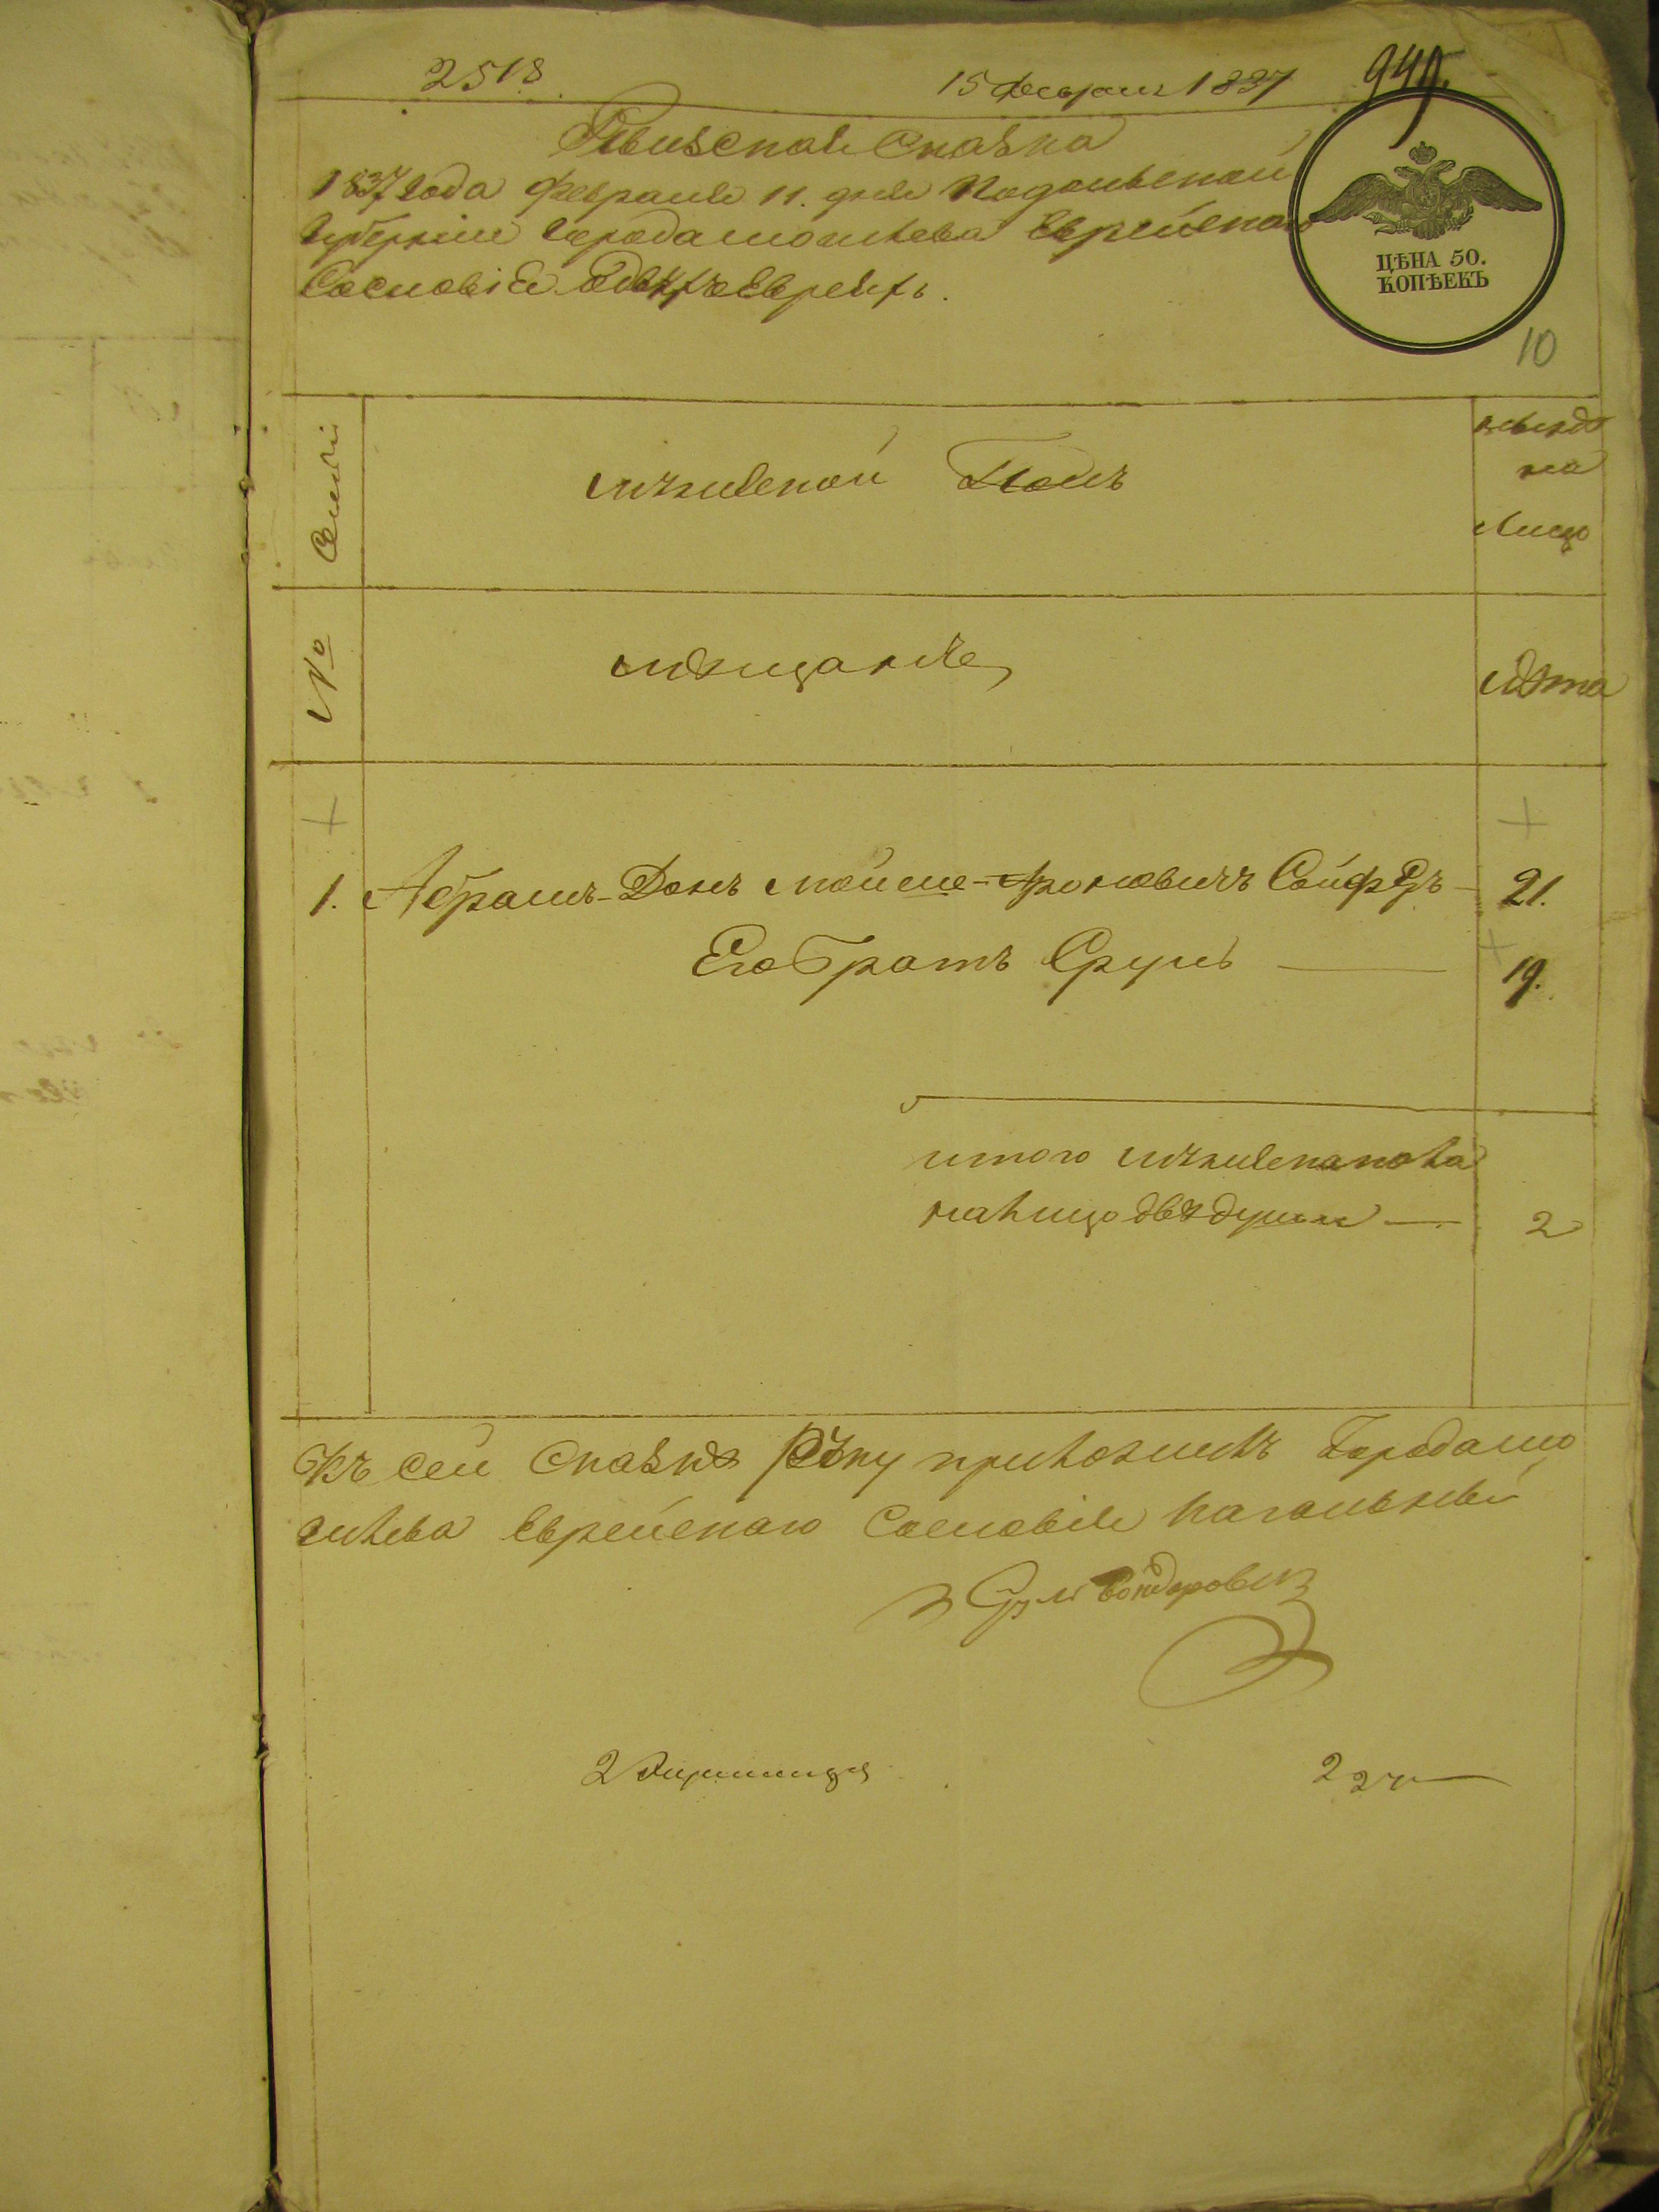 2518
15 Февраля 1837
949.
Ревизская Сказка
1837 Года Февраля 11. дня Подольской
Губернии Города Могилева Еврейскаго
Сословія о двухъ Евреяхъ.
ЦѢНА 50.
КОПѢЕКЪ
10
Семьи
мужеской Полъ
на
Лицо
№
мѣщанѣ
Лѣта
1. Абрамъ-Донъ Мойше-Ароновичъ Сойферъ 21.
Его Братъ Сруль 19.
итого мужеска пола
на лицо двѣ души 2
Къ сей Сказкѣ Руку приложилъ Города Мо
гилева Еврейскаго Сословія Кагальный
Сруль Бондаровскъ
2
2